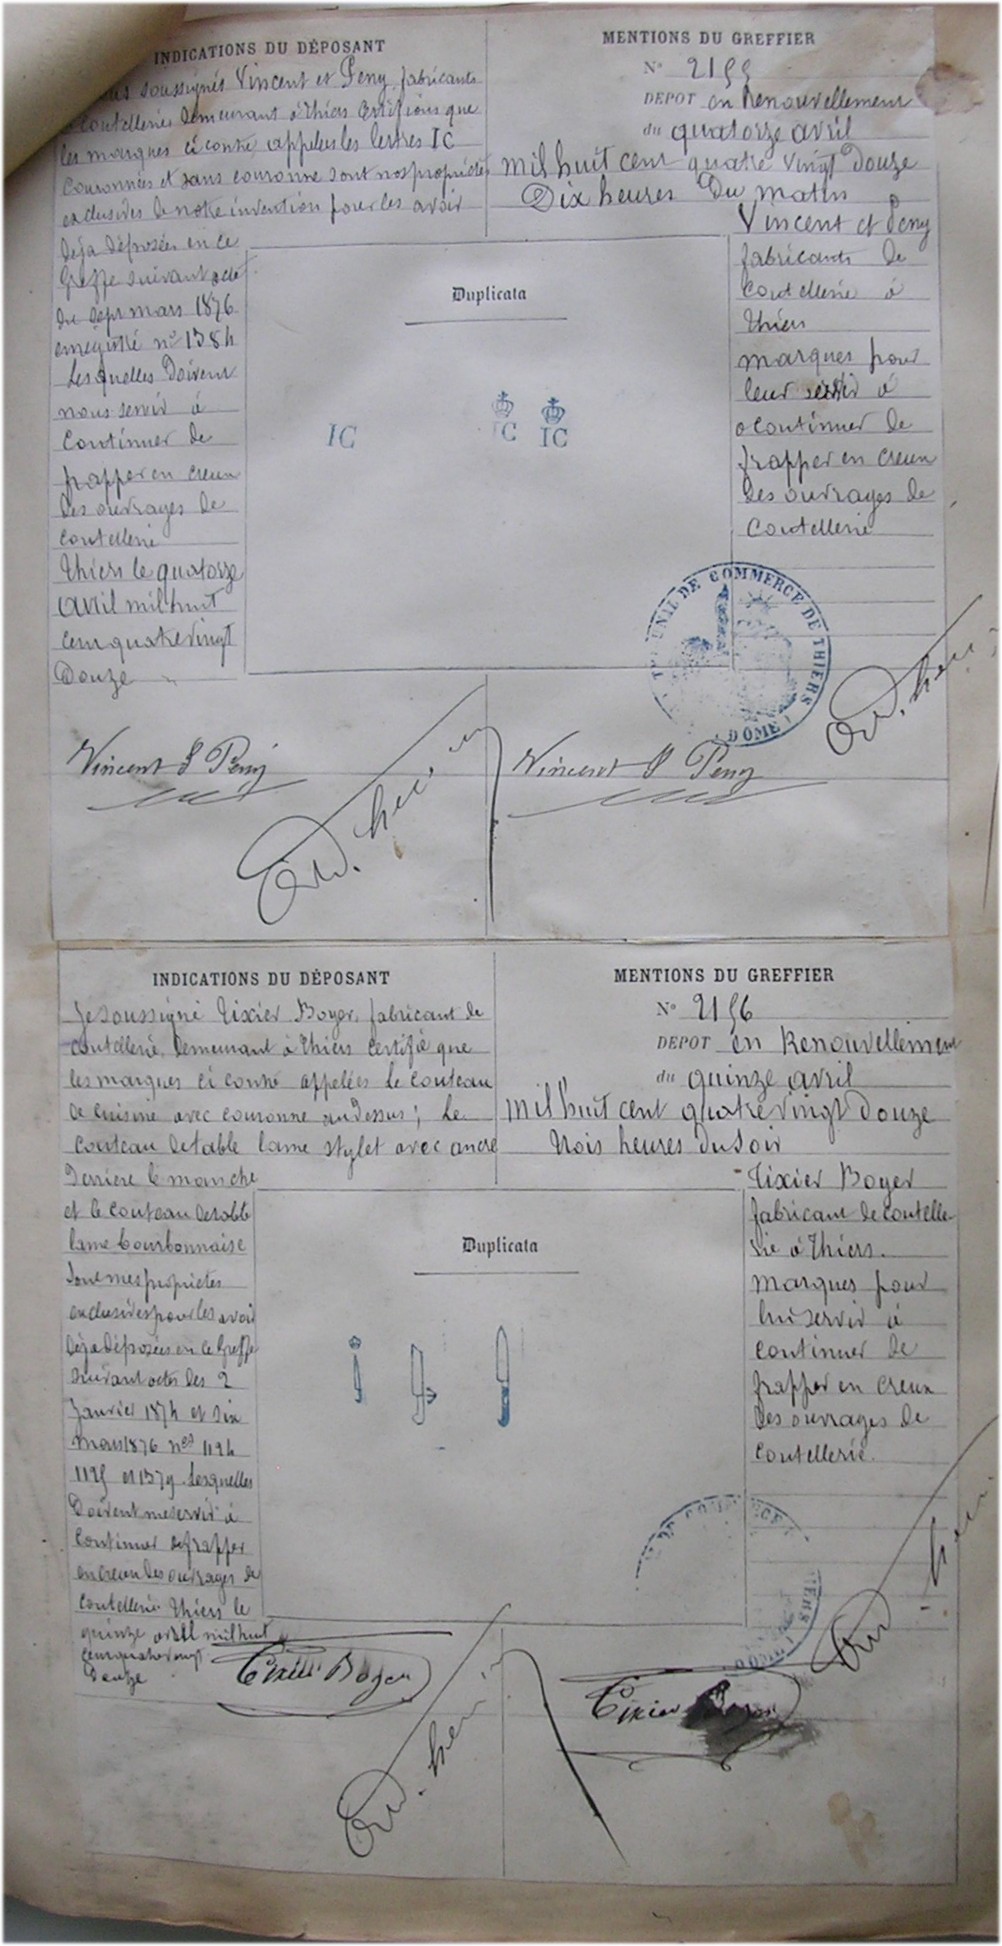 INDICATIONS DU DÉPOSANT
soussignés Vincent et Peny fabricants
coutelleries demeurant à Thiers certifions que
les marques ci contre appelées les lettres IC
couronnées et sans couronne sont nos propriétés
exclusives de notre invention pour les avoir
déjà déposées en ce
Greffe suivant acte
du sept mars 1876
enregistré n°
Lesquelles doivent
nous servir à
continuer de
frapper en creux
des ouvrages de
coutellerie
Thiers le quatorze
avril mil huit
cent quatre vingt
Douze
MENTIONS DU GREFFIER
N° 2155
DEPOT en Renouvellement
du quatorze avril
mil huit cent quatre vingt Douze
Dix heures Du matin
Vincent et Peny
fabricants de
Coutellerie à
Thiers
marques pour
leur servir à
continuer de
frapper en creux
des ouvrages de
coutellerie
Duplicata
IC
IC
IC
TRIBUNAL DE COMMERCE DE THIERS
DOME
Vincent & Peny
Vincent & Peny
INDICATIONS DU DÉPOSANT
Je soussigné Tixier Boyer, fabricant de
coutellerie, demeurant à Thiers certifie que
les marques ci contre appelées le couteau
de cuisine avec couronne au dessus; le
couteau de table lame stylet avec ancre
derrière le manche
et le couteau de table
lame bourbonnaise
sont mes propriétés
exclusives pour les avoir
déjà déposées en ce Greffe
suivant actes des 2
Janvier 1874 et six
mars 1876 nos 1124
1125 et 1379. Lesquelles
Doivent me servir à
continuer de frapper
en creux des ouvrages de
coutellerie. Thiers le
quinze avril mil huit
cent quatre vingt
Douze
MENTIONS DU GREFFIER
N° 2156
DEPOT en Renouvellement
du quinze avril
mil huit cent quatre vingt douze
trois heures du soir
Tixier Boyer
fabricant de coutelle-
rie à Thiers.
marques pour
lui servir à
continuer de
frapper en creux
des ouvrages de
coutellerie.
Duplicata
DE COMMERCE
Tixier Boyer
Tixier Boyer